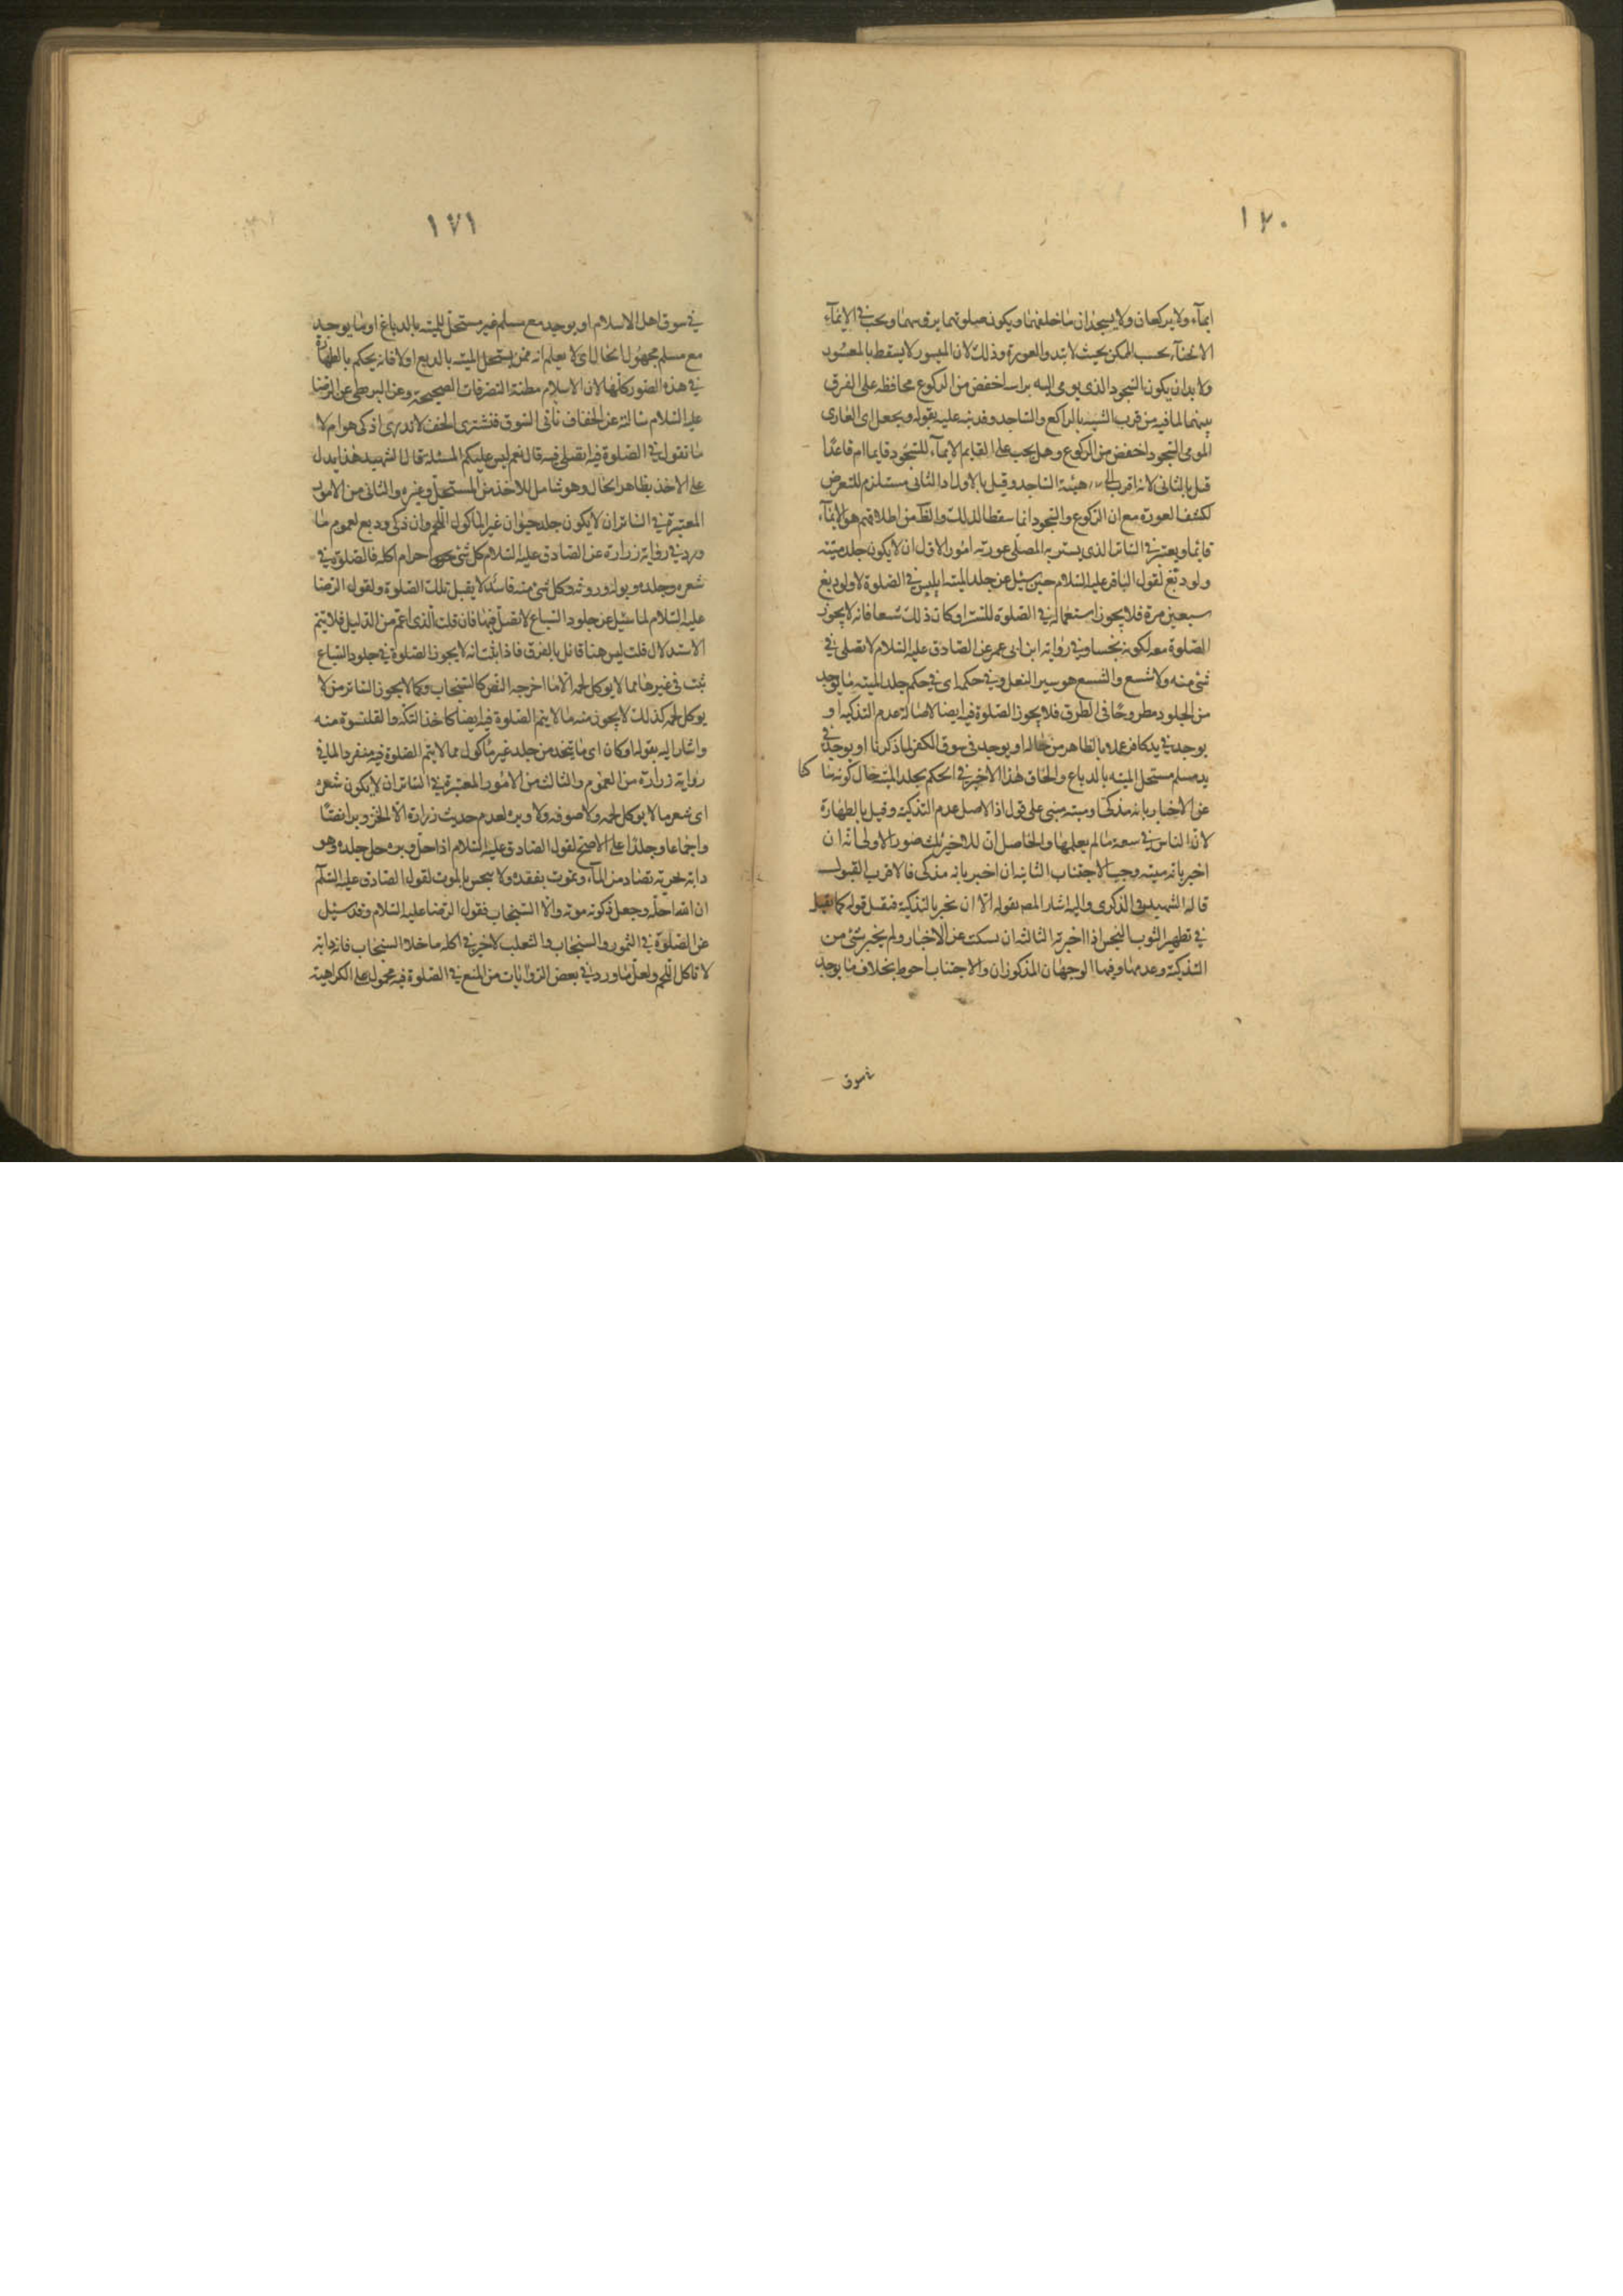 ١٧٠
ايماء ولا يركعان ولا يسجدان ما خلفهما ويكون صلوتهما برؤسهما ويجب في الايماء
الانحناء بحسب الممكن بحيث لا تبدو العورة وذلك لان الميسور لا يسقط بالمعسور
ولا بد ان يكون السجود الذي يومى اليه براسه اخفض من الركوع محافظة على الفرق
بينهما لما فيه من قرب الشبه بالراكع والساجد وقد نبه عليه بقوله ويجعل اى العارى
المومى السجود اخفض من الركوع وهل يجب على القايم الايماء للسجود قايما ام قاعدا
قيل بالثانى لانه اقرب الى هيئة الساجد وقيل بالاول اذ الثانى مستلزم للتعرض
لكشف العورة مع ان الركوع والسجود انما سقطا لذلك والظ من اطلاقهم هو الايماء
قايما ويعتبر في الساتر الذى يستر به المصلى عورته امور الاول ان لا يكون جلد ميتة
ولو دبغ لقول الباقر عليه السلام حين سئل عن جلد الميتة ايلبس في الصلوة لا ولو دبغ
سبعين مرة فلا يجوز استعماله في الصلوة للستر او كان ذلك شسعا فانه لا يجوز
الصلوة معه لكونه نجسا وفي رواية ابن ابى عمير عن الصادق عليه السلام لا تصلى في
شئ منه ولا شسع والشسع هو سير النعل وفي حكمه اى في حكم جلد الميتة ما يوجد
من الجلود مطروحا في الطرق فلا يجوز الصلوة فيه ايضا لاصالة عدم التذكية او
يوجد في يد كافر عملا بالظاهر من حاله او يوجد في سوق الكفر لما ذكرنا او يوجد في
يد مسلم مستحل الميتة بالدباغ والحاق هذا الاخير في الحكم بجلد الميتة حال كونه ساكتا
عن الاخبار بانه مذكى او ميتة مبنى على قول اذ الاصل عدم التذكية وقيل بالطهارة
لان الناس في سعة ما لم يعلموا والحاصل ان للاخير ثلث صور الاولى انه ان
اخبر بانه ميتة وجب الاجتناب الثانية ان اخبر بانه مذكى فالاقرب القبول
قاله الشهيد في الذكرى واليه اشار المصـ بقوله الا ان يخبر بالتذكية فيقبل قوله كما يقبل
في تطهير الثوب النجس اذا اخبر به الثالثة ان سكت عن الاخبار ولم يخبر بشئ من
التذكية وعدمها وفيها الوجهان المذكوران والاجتناب احوط بخلاف ما يوجد
في سوق
١٧١
في سوق اهل الاسلام او يوجد مع مسلم غير مستحل للميتة بالدباغ او ما يوجد
مع مسلم مجهول الحال اى لا يعلم انه ممن يستحل الميتة بالدبغ اولا فانه يحكم بالطهارة
في هذه الصور كلها لان الاسلام مظنة التصرفات الصحيحة وعن البزنطى عن الرضا
عليه السلام سالته عن الخفاف نأتى السوق فنشترى الخف لا ندرى اذكى هو ام لا
ما تقول في الصلوة فيه ايصلى فيه قال نعم ليس عليكم المسئلة قال الشهيد هذا يدل
على الاخذ بظاهر الحال وهو شامل للاخذ من المستحل وغيره والثانى من الامور
المعتبرة في الساتر ان لا يكون جلد حيوان غير الماكول اللحم وان ذكى ودبغ لعموم ما
ورد في رواية زرارة عن الصادق عليه السلام كل شئ حرام اكله فالصلوة في
شعره وجلده وبوله وروثه وكل شئ منه فاسد لا يقبل تلك الصلوة ولقول الرضا
عليه السلام لما سئل عن جلود السباع لا تصل فيها فان قلت الذى اعم من الدليل فلا يتم
الاستدلال قلت ليس هنا قائل بالفرق فاذا ثبت انه لا يجوز الصلوة في جلود السباع
ثبت في غيرها مما لا يوكل لحمه الا ما اخرجه النص كالسنجاب وكما لا يجوز الساتر من لا
يوكل لحمه كذلك لا يجوز منه ما لا يتم الصلوة فيه ايضا كاخذ التكة والقلنسوة منه
واشار اليه بقوله او كان اى ما يتخذ من جلد غير ماكول مما لا يتم الصلوة فيه منفردا لما في
رواية زرارة من العموم والثالث من الامور المعتبرة في الساتر ان لا يكون شعره
اى شعر ما لا يوكل لحمه ولا صوفه ولا وبره لعدم حديث زرارة الا الخز وبرا نصا
واجماعا وجلدا على الاصح لقول الصادق عليه السلام اذا حل وبره حل جلده وهو
دابة بحرية تصاد من الماء وتموت بفقده ولا ينجس بالموت لقول الصادق عليه السلام
ان الله احله وجعل ذكوته موته والا السنجاب فقول الرضا عليه السلام وقد سئل
عن الصلوة في النمور والسنجاب والثعلب لا خير في اكله ما خلا السنجاب فانه دابة
لا تاكل اللحم ولعل ما ورد في بعض الروايات من المنع في الصلوة فيه محمول على الكراهية